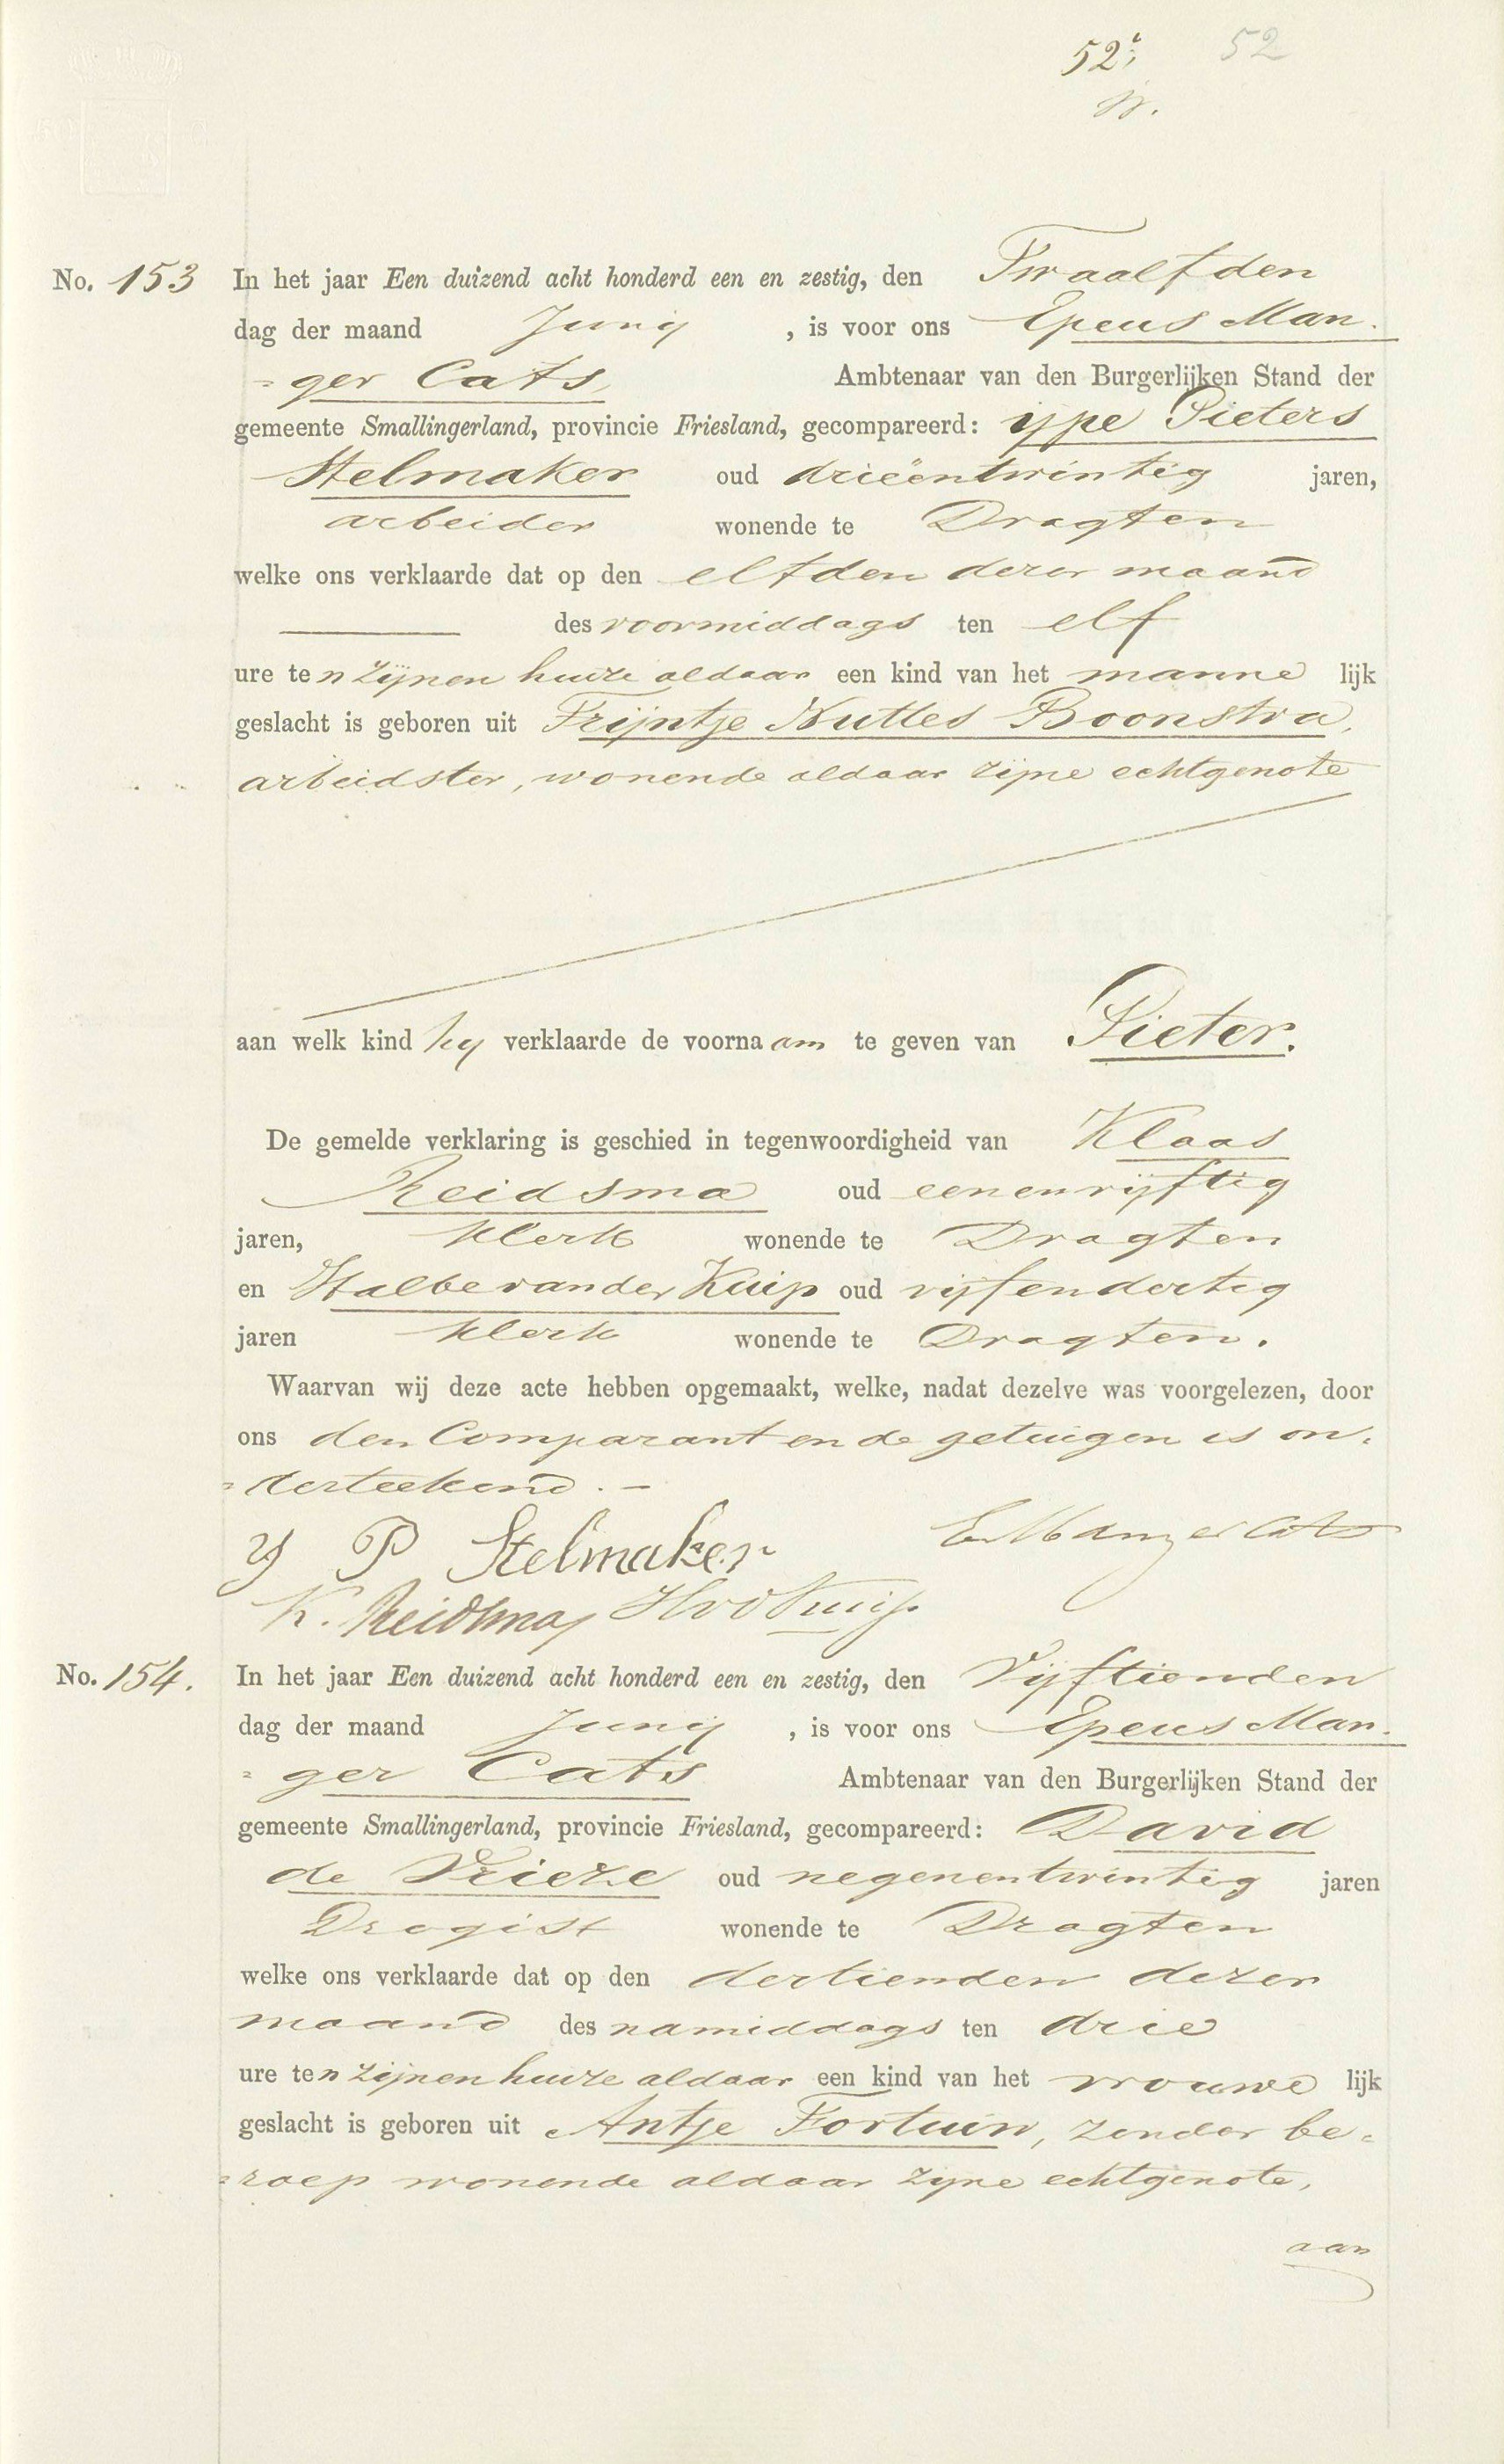 52
52
No. 153 In het jaar Een duizend acht honderd een en zestig, den Twaalfden
dag der maand Junij , is voor ons Epeus Man-
ger Cats Ambtenaar van den Burgerlijken Stand der
gemeente Smallingerland, provincie Friesland, gecompareerd: ype Pieters
Stelmaker oud drieëntwintig jaren,
arbeider wonende te Dragten
welke ons verklaarde dat op den elfden dezer maand
des voormiddags ten elf
ure ten zijnen huize aldaar een kind van het manne lijk
geslacht is geboren uit Trijntje Nuttes Boonstra,
arbeidster, wonende aldaar zijne echtgenote
aan welk kind hy verklaarde de voorna am te geven van Pieter.
De gemelde verklaring is geschied in tegenwoordigheid van Klaas
Reidsma oud eenenvijftig
jaren, klerk wonende te Dragten
en Halbe van der Kuip oud vijfendertig
jaren klerk wonende te Dragten.
Waarvan wij deze acte hebben opgemaakt, welke, nadat dezelve was voorgelezen, door
ons den Comparant en de getuigen is on-
derteekend. -
Y P Stelmaker E Manger Cats
K. Reidsma HvdKuip
No. 154. In het jaar Een duizend acht honderd een en zestig, den Vijftienden
dag der maand Junij , is voor ons Epeus Man-
ger Cats Ambtenaar van den Burgerlijken Stand der
gemeente Smallingerland, provincie Friesland, gecompareerd: David
de Vrieze oud negenentwintig jaren
Drogist wonende te Dragten
welke ons verklaarde dat op den dertienden dezer
maand des namiddags ten drie
ure ten zijnen huize aldaar een kind van het vrouwe lijk
geslacht is geboren uit Antje Fortuin, zonder be-
roep wonende aldaar zyne echtgenote,
aan